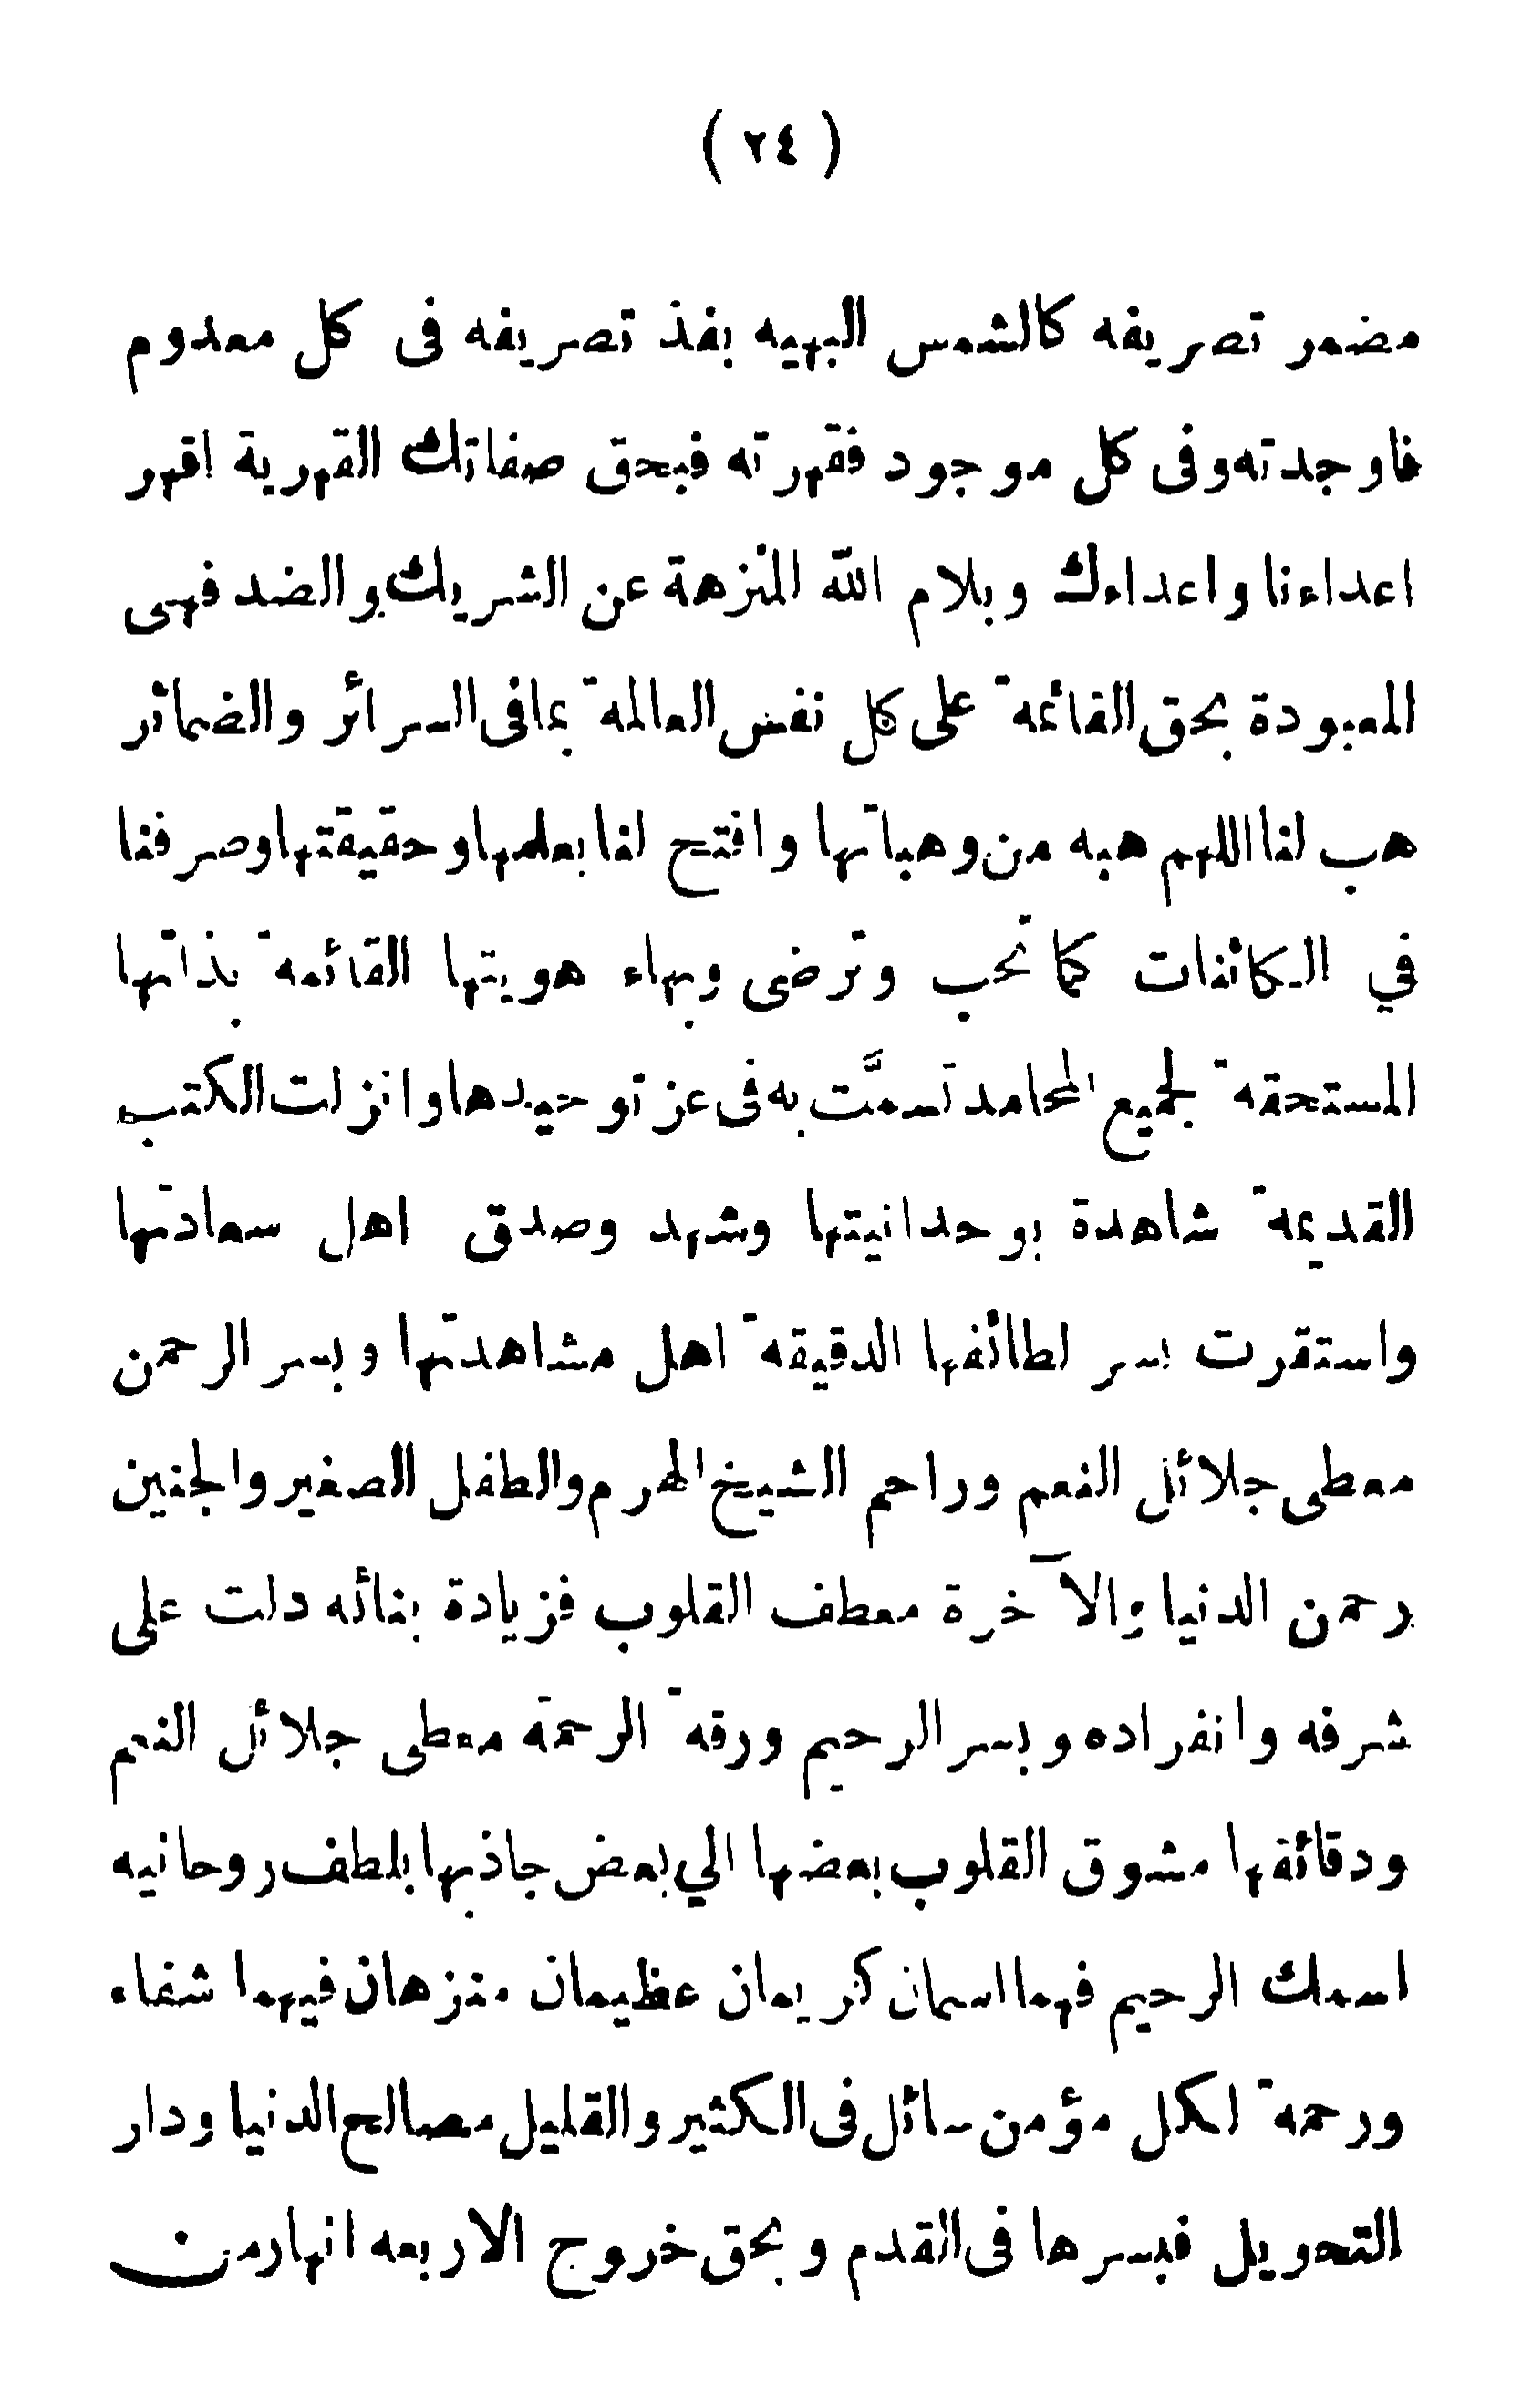 ( ٢٤ )
مضمر تصريفه كالشمس البهيه بفذ تصريفه فى كل معدوم
فاوجدته وفى كل موجود فقهرته فبحق صفاتك القهرية اقهر
اعداءنا واعداءك وبلام الله المنزهة عن الشريك والضد فهى
المعبودة بحق القائمة على كل نفس العالمة بمافى السرائر والضمائر
هب لنا اللهم هبه من وهباتها وافتح لنا بعلمها وحقيقتها وصرفنا
في الكائنات كما تحب وترضى وبهاء هويتها القائمة بذاتها
المستحقة لجميع المحامد تسمَّت به فى عز توحيدها وانزلت الكتب
القديمة شاهدة بوحدانيتها وشهد وصدق اهل سعادتها
واستقرت بسر لطائفها الدقيقة اهل مشاهدتها وبسر الرحمن
معطى جلائل النعم وراحم الشيخ الهرم والطفل الصغير والجنين
رحمن الدنيا والآخرة معطف القلوب فزيادة بنائه دلت على
شرفه وانفراده وبسر الرحيم ورقة الرحمة معطى جلائل النعم
ودقائقها مشوق القلوب بعضها الي بعض جاذبها بلطف روحانيه
اسمك الرحيم فهما اسمان كريمان عظيمان منزهان فيهما شفاء
ورحمة لكل مؤمن سائل فى الكثير والقليل مصالح الدنيا ودار
التحويل فبسرها فى القدم وبحق خروج الاربعه انهار من